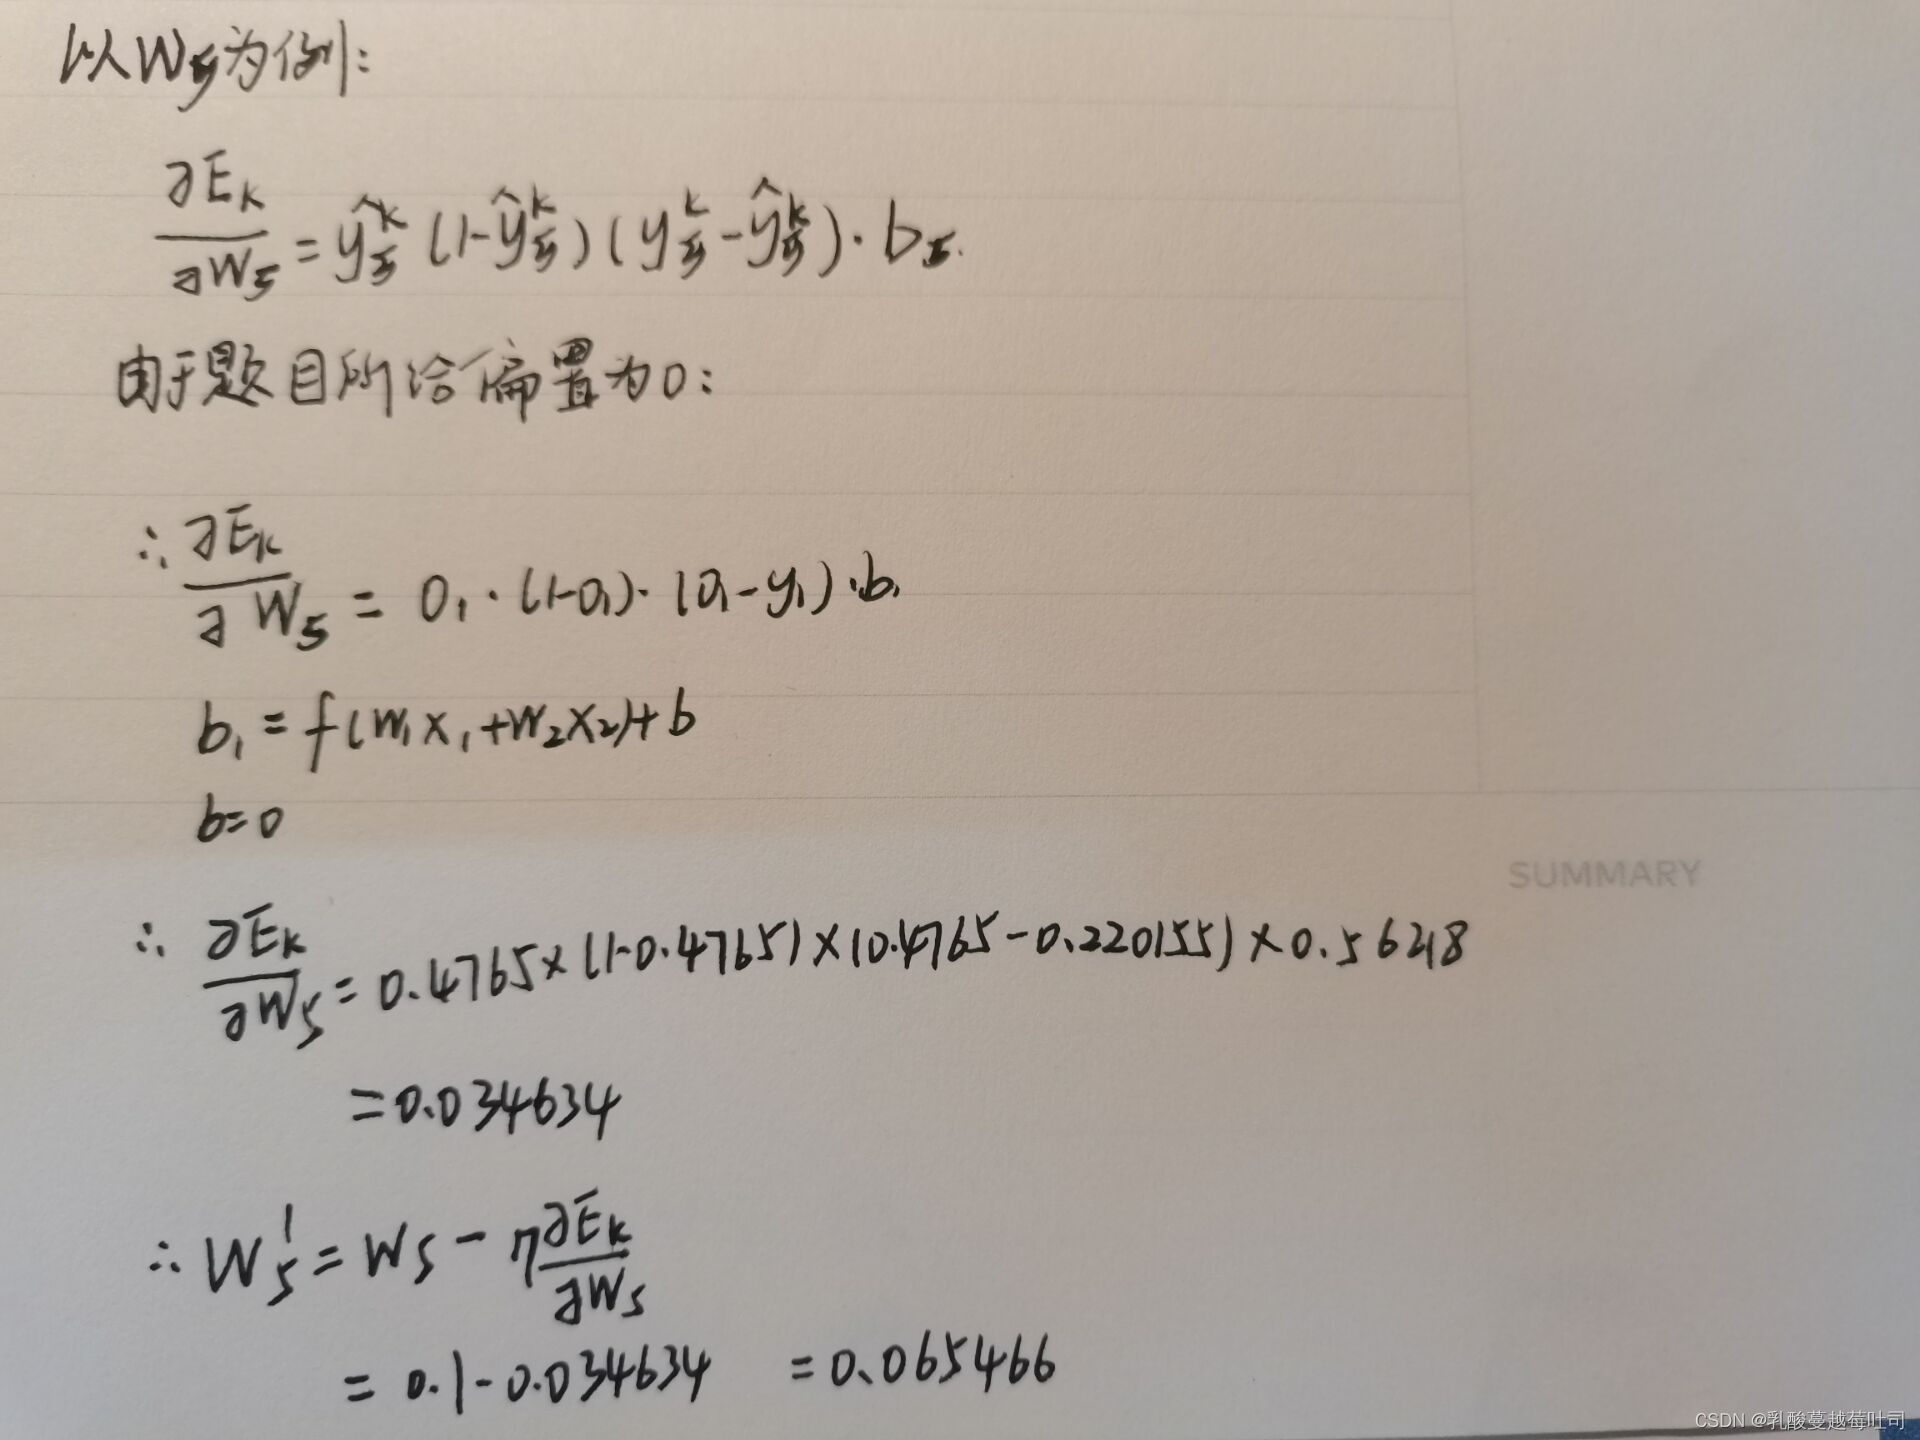 以W5为例:
∂Ek/∂W5 = ŷ5^k (1-ŷ5^k)(y5^k-ŷ5^k)·b5.
由于题目所给偏置为0:
∴ ∂Ek/∂W5 = O1·(1-O1)·(O1-y1)·b1
b1 = f(W1X1+W2X2)+b
b=0
SUMMARY
∴ ∂Ek/∂W5 = 0.4765×(1-0.4765)×(0.4765-0.220155)×0.56218
=0.034634
∴ W5^1 = W5 - η ∂Ek/∂W5
= 0.1-0.034634 =0.065466
CSDN @乳酸蔓越莓吐司